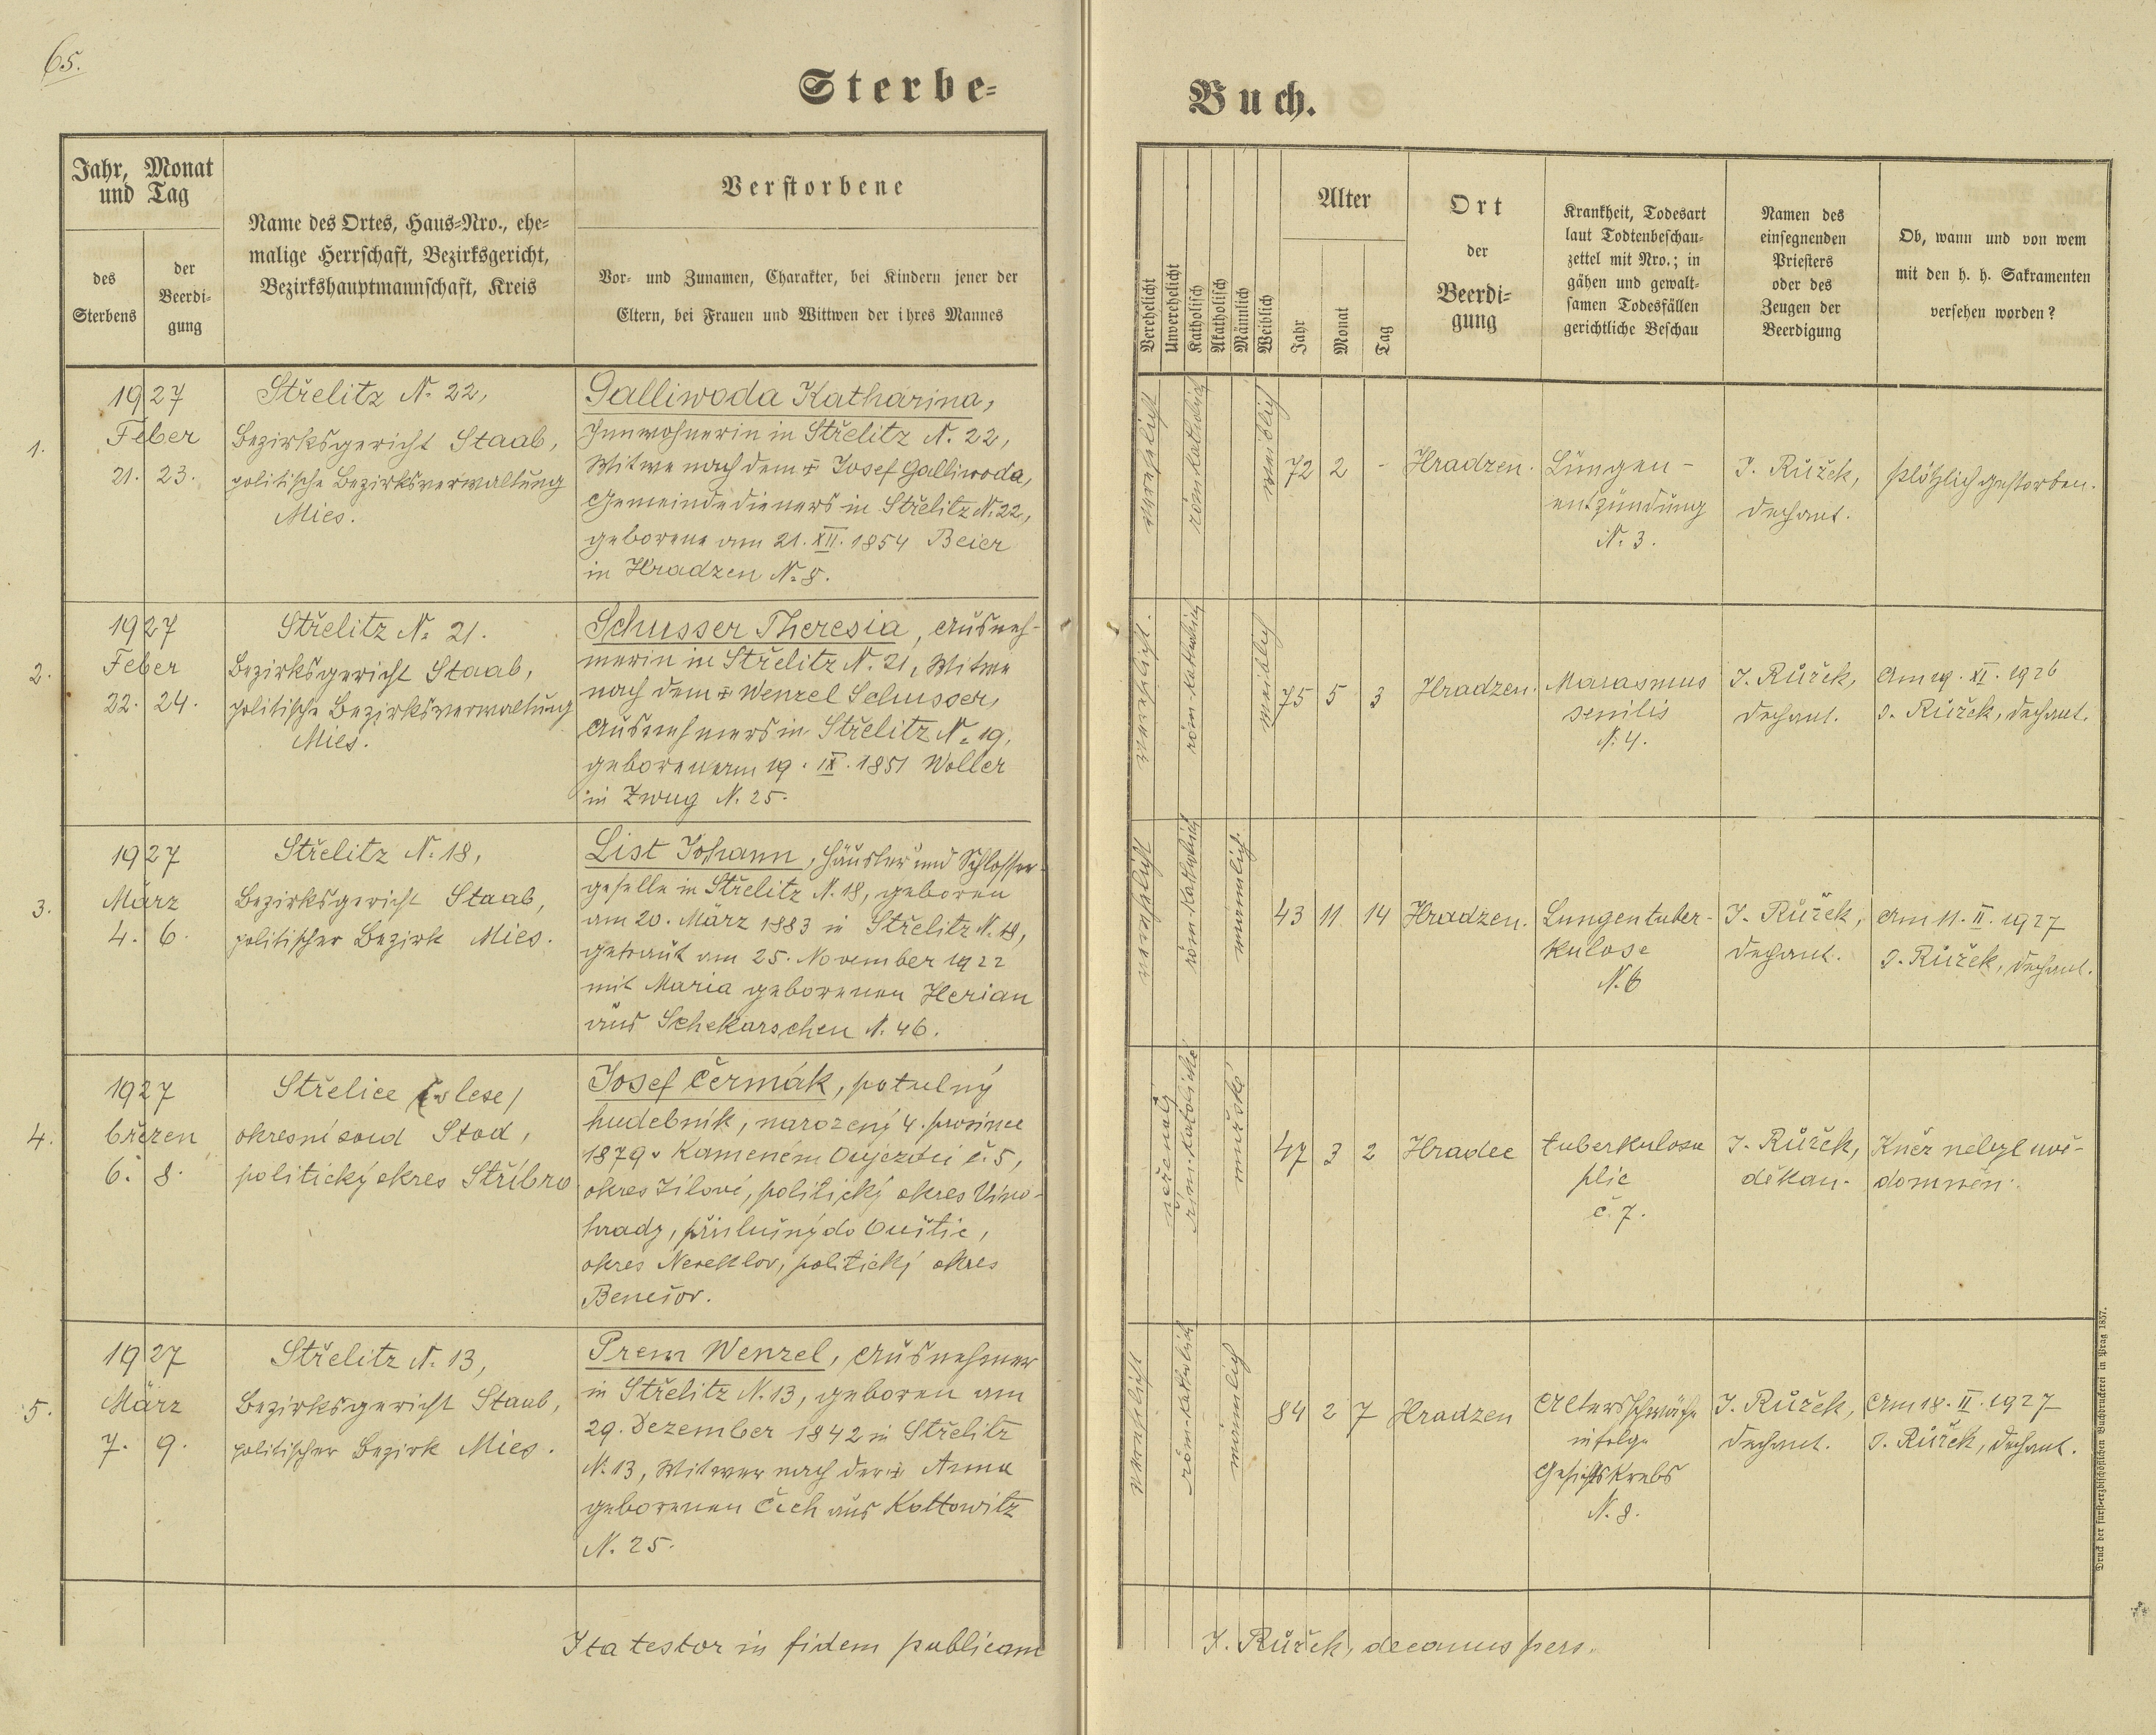 65.
Sterbe-
Buch.
Jahr, Monat
und Tag
des
Sterbens
der
Beerdi-
gung
Name des Ortes, Haus-Nro., ehe-
malige Herrschaft, Bezirksgericht,
Bezirkshauptmannschaft, Kreis
Verstorbene
Vor- und Zunamen, Charakter, bei Kindern jener der
Eltern, bei Frauen und Wittwen der ihres Mannes
Verehelicht
Unverehelicht
Katholisch
Akatholisch
Männlich
Weiblich
Alter
Jahr
Monat
Tag
Ort
der
Beerdi-
gung
Krankheit, Todesart
laut Todtenbeschau-
zettel mit Nro.; in
gähen und gewalt-
samen Todesfällen
gerichtliche Beschau
Namen des
einsegnenden
Priesters
oder des
Zeugen der
Beerdigung
Ob, wann und von wem
mit den h. h. Sakramenten
versehen worden?
1.
1927
Feber
21. 23.
Střelitz N. 22,
Bezirksgericht Staab,
politische Bezirksverwaltung
Mies.
Galliwoda Katharina,
Innwohnerin in Střelitz N. 22,
Witwe nach dem ✝ Josef Galliwoda,
Gemeindedieners in Střelitz N. 22,
geborene am 21. XII. 1854 Beier
in Hradzen N. 8.
verehelicht
röm. katholisch
weiblich
72 2 -
Hradzen.
Lungen-
entzündung
N. 3.
J. Růžek,
Dechant.
plötzlich gestorben.
2.
1927
Feber
22. 24.
Střelitz N. 21.
Bezirksgericht Staab,
politische Bezirksverwaltung
Mies.
Schusser Theresia, Ausneh-
merin in Střelitz N. 21, Witwe
nach dem ✝ Wenzel Schusser,
Ausnehmers in Střelitz N. 19,
geboren am 19. IX. 1851 Woller
in Zwug N. 25.
verehelicht.
röm. katholisch
weiblich
75 5 3
Hradzen.
Marasmus
senilis
N. 4.
J. Růžek,
Dechant.
Am 19. XI. 1926
J. Růžek, Dechant.
3.
1927
März
4. 6.
Střelitz N. 18,
Bezirksgericht Staab,
politischer Bezirk Mies.
List Johann, Häusler und Schlosser-
geselle in Střelitz N. 18, geboren
am 20. März 1883 in Střelitz N. 18,
getraut am 25. November 1922
mit Maria geborenen Herian
aus Schekarschen N. 46.
verehelicht
röm. katholisch
männlich.
43 11 14
Hradzen.
Lungentuber-
kulose
N. 6
J. Růžek,
Dechant.
Am 11. II. 1927
J. Růžek, Dechant.
4.
1927
březen
6. 8.
Střelice /v lese/
okresní soud Stod,
politický okres Stříbro
Josef Čermák, potulný
hudebník, narozený 4. prosince
1879 v Kameném Oujezdci č. 5,
okres Jílové, politický okres Vino-
hrady, příslušný do Ouštic,
okres Neveklov, politický okres
Benešov.
řím. katolické
mužské
47 3 2
Hradec
tuberkulosa
plic
č. 7.
J. Růžek,
děkan.
Kněz nebyl uvě-
domněn.
5.
1927
März
7. 9.
Střelitz N. 13,
Bezirksgericht Staab,
politischer Bezirk Mies.
Prem Wenzel, Ausnehmer
in Střelitz N. 13, geboren am
29. Dezember 1842 in Střelitz
N. 13, Witwer nach der ✝ Anna
geborenen Čech aus Kottowitz
N. 25.
verehelicht
röm. katholisch
männlich
84 2 7
Hradzen
Altersschwäche
infolge
Gesichtskrebs
N. 8.
J. Růžek,
Dechant.
Am 18. II. 1927
J. Růžek, Dechant.
Ita testor in fidem publicam
J. Růžek, decanus pers.
Druck der fürst-erzbischöflichen Buchdruckerei in Prag 1857.